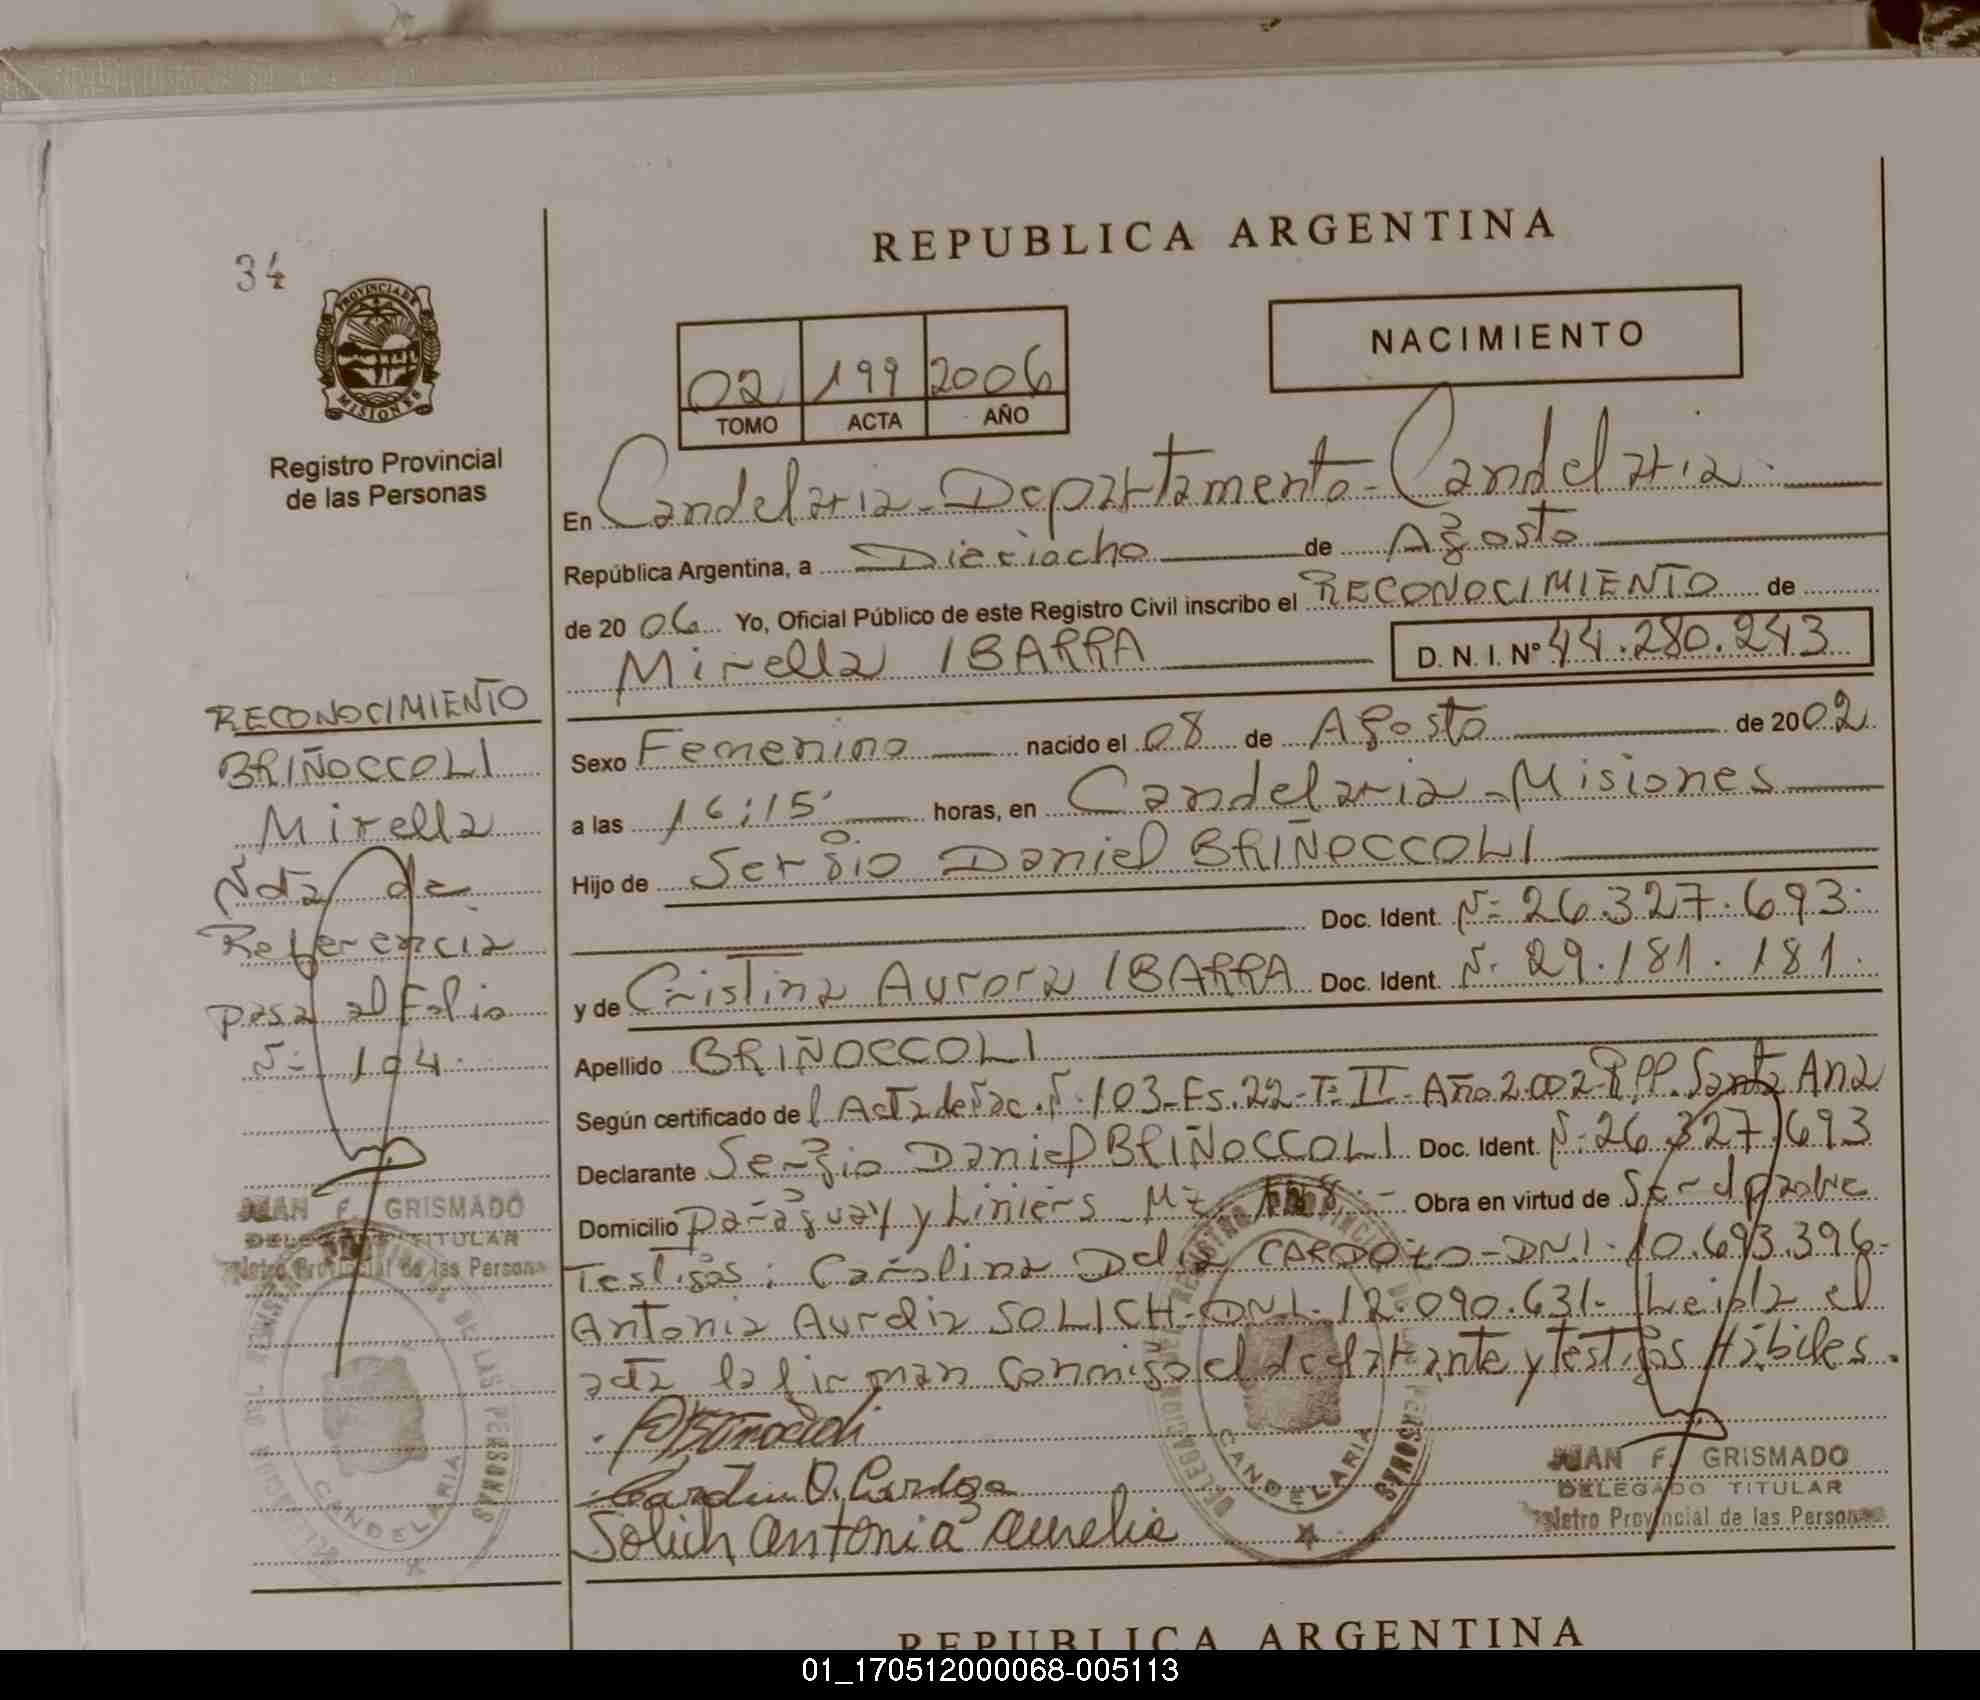 34
REPUBLICA ARGENTINA
PROVINCIA DE
MISIONES
Registro Provincial
de las Personas
02 199 2006
TOMO ACTA AÑO
NACIMIENTO
En Candelaria - Departamento - Candelaria.
República Argentina, a Dieciocho de Agosto
de 2006 Yo, Oficial Público de este Registro Civil inscribo el RECONOCIMIENTO de
Mirella IBARRA D. N. I. Nº 44.280.243
Sexo Femenino nacido el 08 de Agosto de 2002
a las 16:15' horas, en Candelaria - Misiones
Hijo de Sergio Daniel BRIÑOCCOLI
Doc. Ident. Nº 26.327.693.
y de Cristina Aurora IBARRA Doc. Ident. N. 29.181.181.
Apellido BRIÑOCCOLI
Según certificado del Acta de Nac. Nº 103-Fs. 22-Tº II-Año 2.002-R.P.P. Santa Ana
Declarante Sergio Daniel BRIÑOCCOLI Doc. Ident. Nº 26.327.693
Domicilio Paraguay y Liniers - Mz. Obra en virtud de Ser el padre
Testigos: Carolina Delia CARDOZO-DNI. 10.693.396-
Antonia Aurelia SOLICH-DNI. 12.090.631- Leída el
acta la firman conmigo el declarante y testigos Hábiles.
Solich Antonia Aurelia
JUAN F. GRISMADO
DELEGADO TITULAR
Registro Provincial de las Personas
CANDELARIA
RECONOCIMIENTO
BRIÑOCCOLI
Mirella
Nota de
Referencia
pasa al Folio
Nº 104.
JUAN F. GRISMADO
DELEGADO TITULAR
Registro Provincial de las Personas
DE LAS PERSONAS
CANDELARIA
REPUBLICA ARGENTINA
01_170512000068-005113